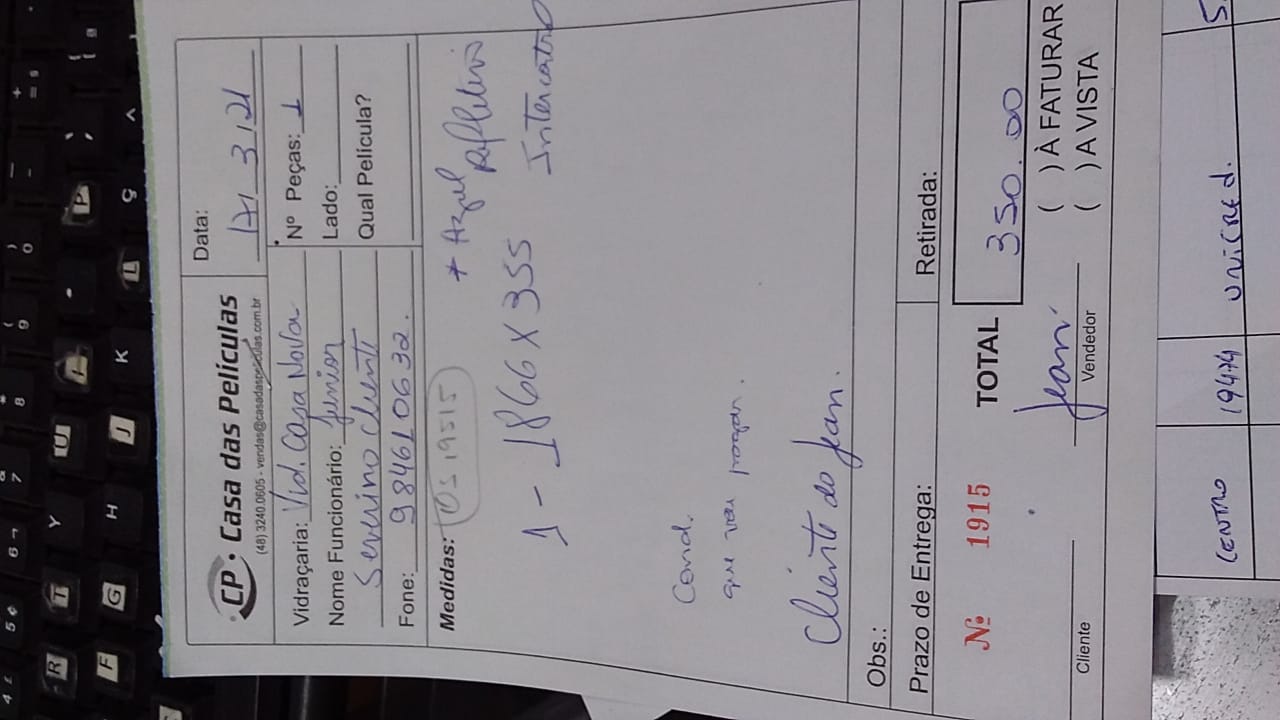 CP. Casa das Películas
(48) 3240.0605 - vendas@casadaspeliculas.com.br
Data:
17/3/21
Vidraçaria: Vid. Casa Nova
Nº Peças: 1
Nome Funcionário: Junior
Lado:
Severino cliente
Qual Película?
Fone: 984610632.
Medidas: OS 19515
* Azul
Refletivo
1 - 1866 X 355
Intercontrol
Cond.
que vai pagar.
Cliente do Jean.
Obs.:
Prazo de Entrega:
Retirada:
Nº 1915
TOTAL 350.00
Jean
( ) À FATURAR
( ) A VISTA
Cliente
Vendedor
CENTRO 19474 UNICRED.